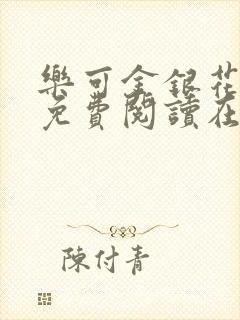 樂可金銀花
免費閱讀在
陳付青